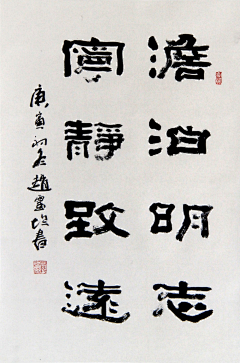 澹泊明志
寧靜致遠
庚寅初冬趙